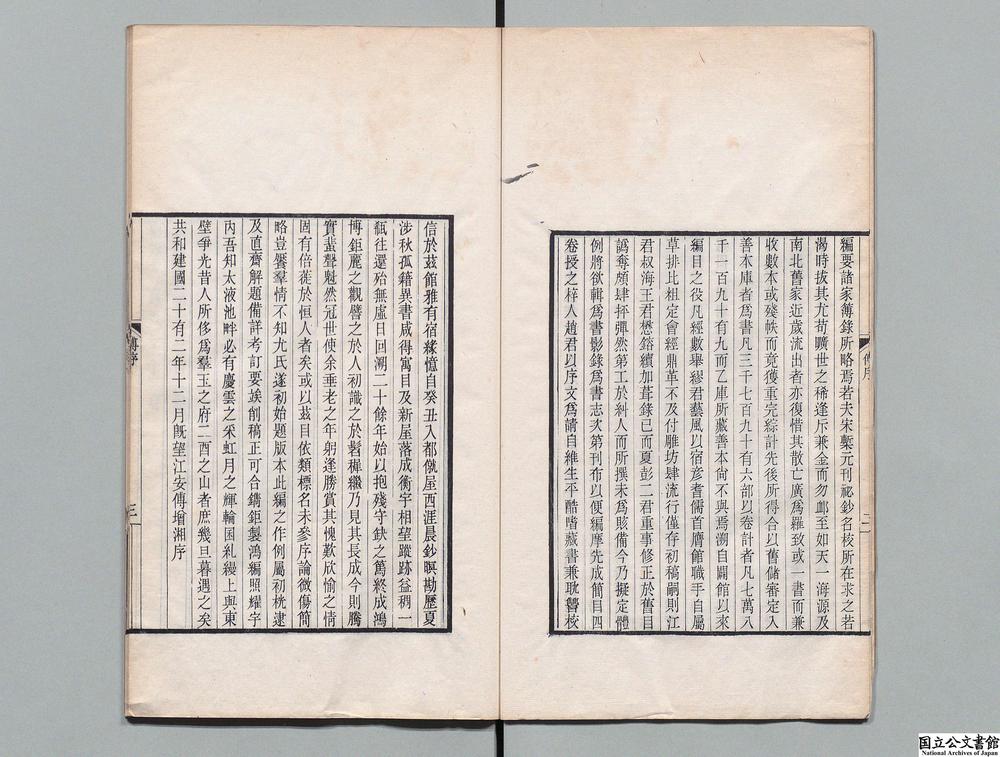 編要諸家簿錄所略焉若夫宋槧元刊祕鈔名校所在求之若
渴時拔其尤苟曠世之稀逢斥兼金而勿䘏至如天一海源及
南北舊家近歲流出者亦復惜其散亡廣爲羅致或一書而兼
收數本或殘帙而竟獲重完綜計先後所得合以舊儲審定入
善本庫者爲書凡三千七百九十有六部以卷計者凡七萬八
千一百九十有九而乙庫所藏善本尙不與焉溯自開館以來
編目之役凡經數舉繆君藝風以宿彦耆儒首膺館職手自屬
草排比粗定會經鼎革不及付雕坊肆流行僅存初稿嗣則江
君叔海王君懋鎔續加葺錄已而夏彭二君重事修正於舊目
譌奪頗肆抨彈然第工於糾人而所撰未爲賅備今乃擬定體
例將欲輯爲書影錄爲書志次第刊布以便編摩先成簡目四
卷授之梓人趙君以序文爲請自維生平酷嗜藏書兼耽讐校
傅序
二
信於茲館雅有宿緣憶自癸丑入都僦屋西涯晨鈔暝勘歷夏
涉秋孤籍異書咸得寓目及新屋落成衡宇相望蹤跡益稠一
瓻往還殆無虛日回溯二十餘年始以抱殘守缺之篤終成鴻
博鉅麗之觀譬之於人初識之於髫穉繼乃見其長成今則騰
實蜚聲魁然冠世使余垂老之年躬逢勝賞其愧歎欣愉之情
固有倍蓰於恒人者矣或以茲目依類標名未參序論微傷簡
略豈饜羣情不知尤氏遂初始題版本此編之作例屬初桄逮
及直齋解題備詳考訂要竢削稿正可合鐫鉅製鴻編照耀宇
內吾知太液池畔必有慶雲之采虹月之輝輪囷糺縵上與東
壁爭光昔人所侈爲羣玉之府二酉之山者庶幾旦暮遇之矣
共和建國二十有二年十二月旣望江安傅增湘序
傅序
三
国立公文書館
National Archives of Japan